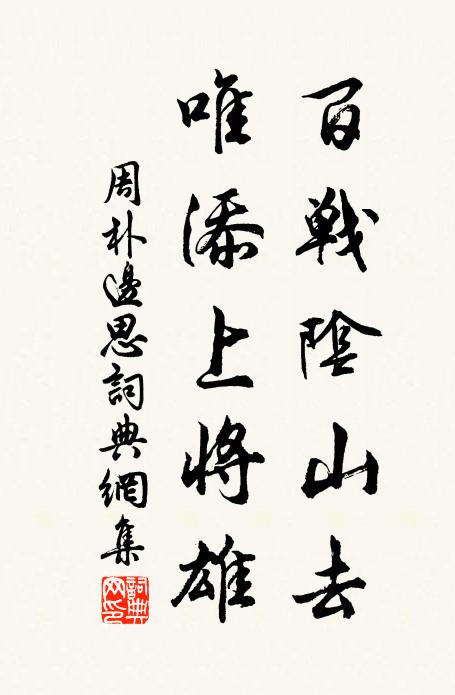 百戰陰山去
唯添上將雄
周朴邊思詞典網集
詞典網印